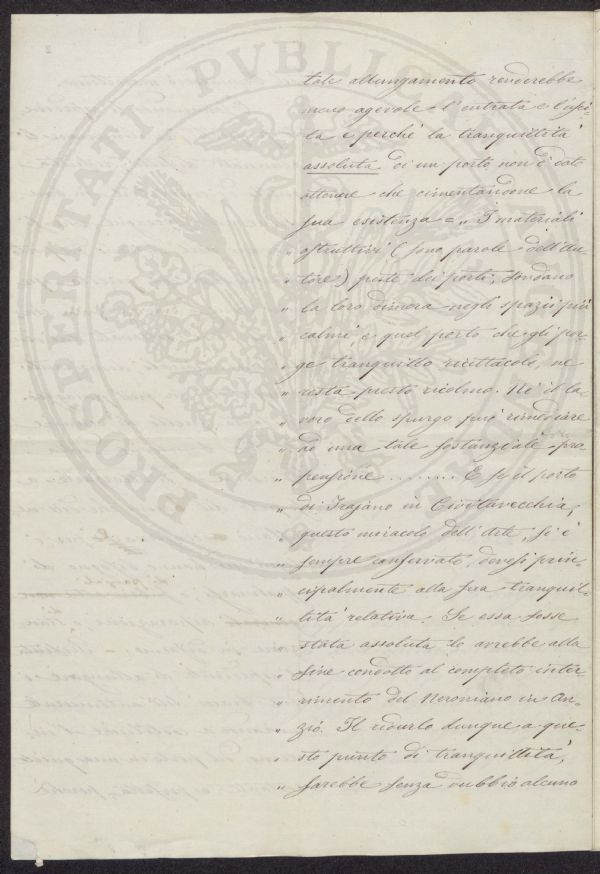 tale allungamento renderebbe
meno agevole l'entrata e l'usci-
ta e perché la tranquillità
assoluta di un porto non è dato
ottenere che cimentandone la
sua esistenza = „ I materiali
„ ostruttivi (sono parole dell'Au-
„ tore) peste dei porti, fondano
„ la loro dimora negli spazii più
„ calmi, e quel porto che gli por-
„ ge tranquillo ricettacolo, ne
„ resta presto ricolmo. Né il la-
„ voro dello spurgo può rimediare
„ ad una tale sostanziale pro-
„ pensione ........ E se il porto
„ di Trajano in Civitavecchia,
„ questo miracolo dell'Arte, si è
„ sempre conservato, devesi prin-
„ cipalmente alla sua tranquil-
„ lità relativa. Se essa fosse
„ stata assoluta lo avrebbe alla
„ fine condotto al completo inter-
„ rimento del Neroniano in An-
„ zio. Il ridurlo dunque a que-
„ sto punto di tranquillità,
„ sarebbe senza dubbio alcuno
PROSPERITATI PVBLICAE